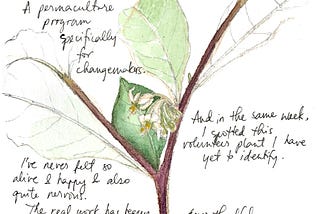 A permaculture
program
specifically
for
changemakers.
And in the same week,
I spotted this
volunteer plant I have
yet to identify.
I've never felt so
alive & happy & also
quite nervous.
The real work has begun